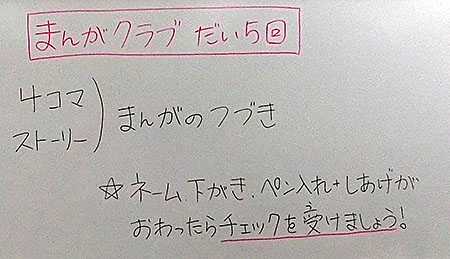 まんがクラブ だい5回
4コマ
ストーリー) まんがのつづき
☆ネーム、下がき、ペン入れ+しあげが
おわったらチェックを受けましょう!